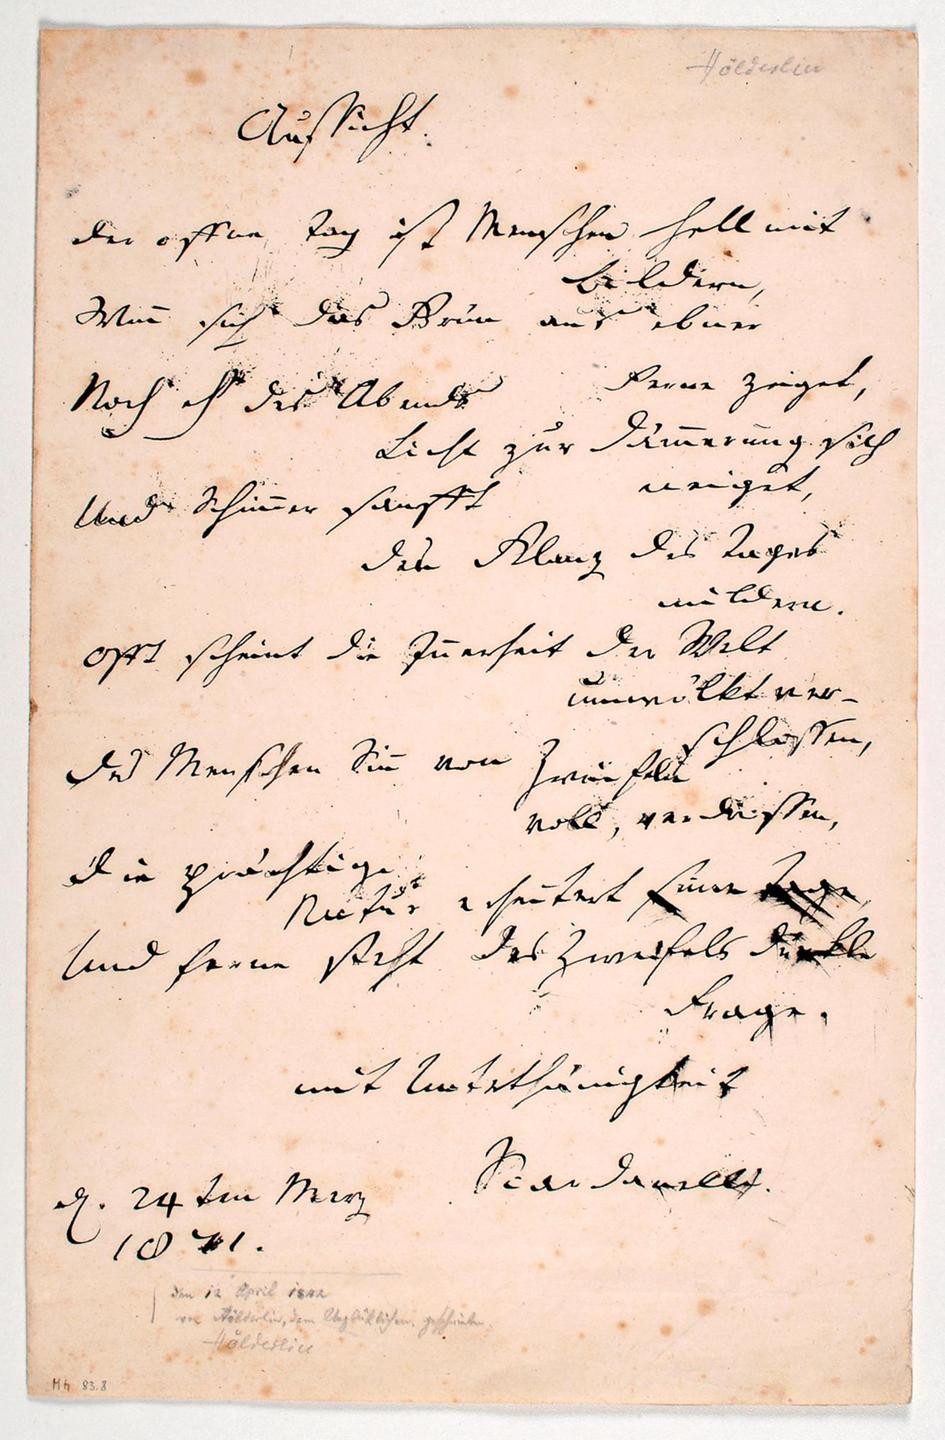 Hölderlin
Aussicht.
Der offne Tag ist Menschen hell mit
Bildern,
Wenn sich das Grün aus ebner
Ferne zeiget,
Noch eh' des Abends
Licht zur Dämmerung sich
neiget,
Und Schimmer sanfft
den Klang des Tages
mildern.
Offt scheint die Innerheit der Welt
umwölkt ver-
schlossen,
Des Menschen Sinn von Zweifeln
voll, verdrossen,
Die prächtige
Natur erheitert seine Tage,
Und ferne steht des Zweifels dunkle
Frage.
Mit Unterthänigkeit
Scardanelli.
d. 24 ten Merz
1871.
den 12 April 1842
von Hölderlin, dem Unglücklichen, geschrieben.
Hölderlin
Hh 83.8